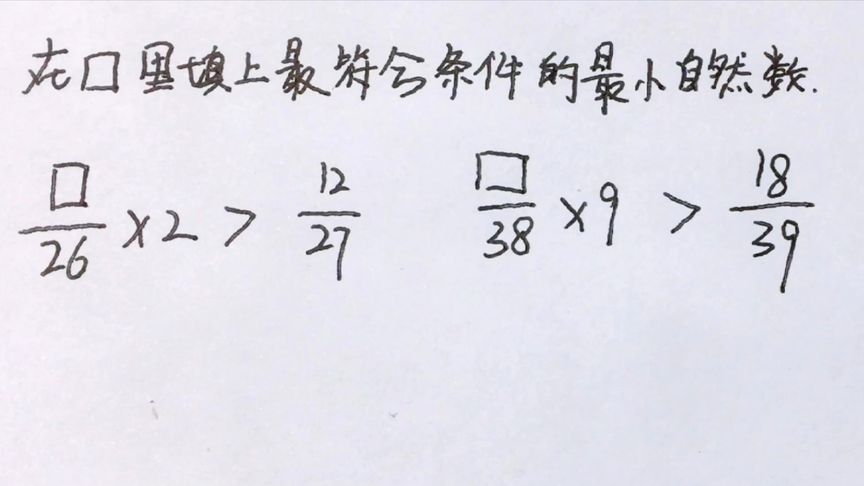 在□里填上最符合条件的最小自然数.
□/26 ×2 > 12/27 □/38 ×9 > 18/39